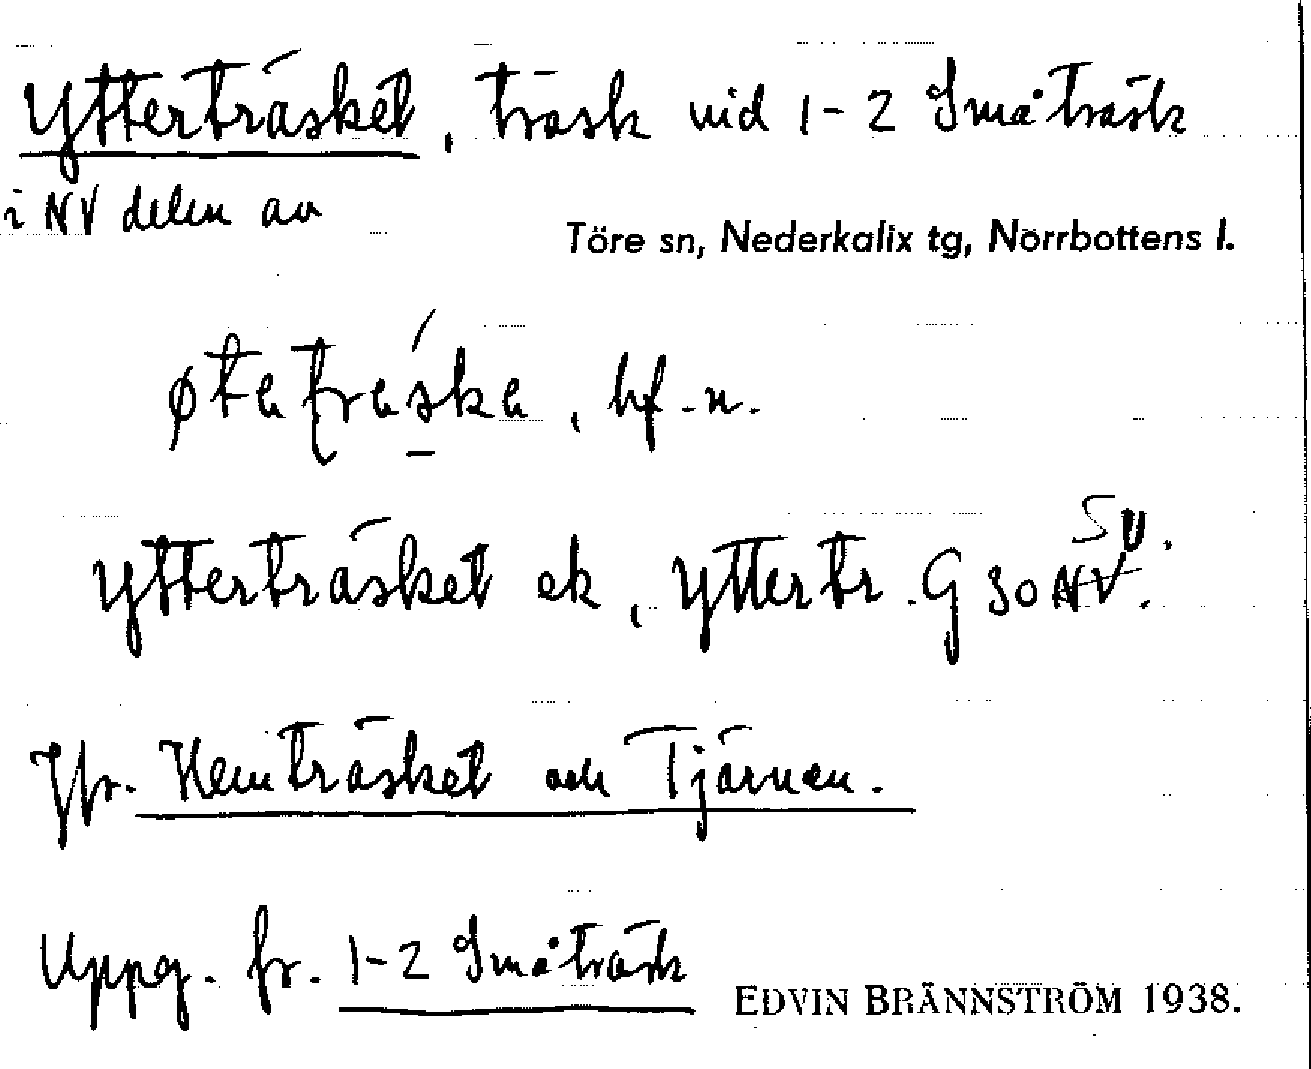 Ytterträsket, träsk vid 1-2 Småträsk
i NV delen av
Töre sn, Nederkalix tg, Norrbottens l.
bf. n.
Ytterträsket ek, Yttertr. G 30 NV. SV.
Jfr. Hemträsket och Tjärnen.
Uppg. fr. 1-2 Småträsk
EDVIN BRÄNNSTRÖM 1938.